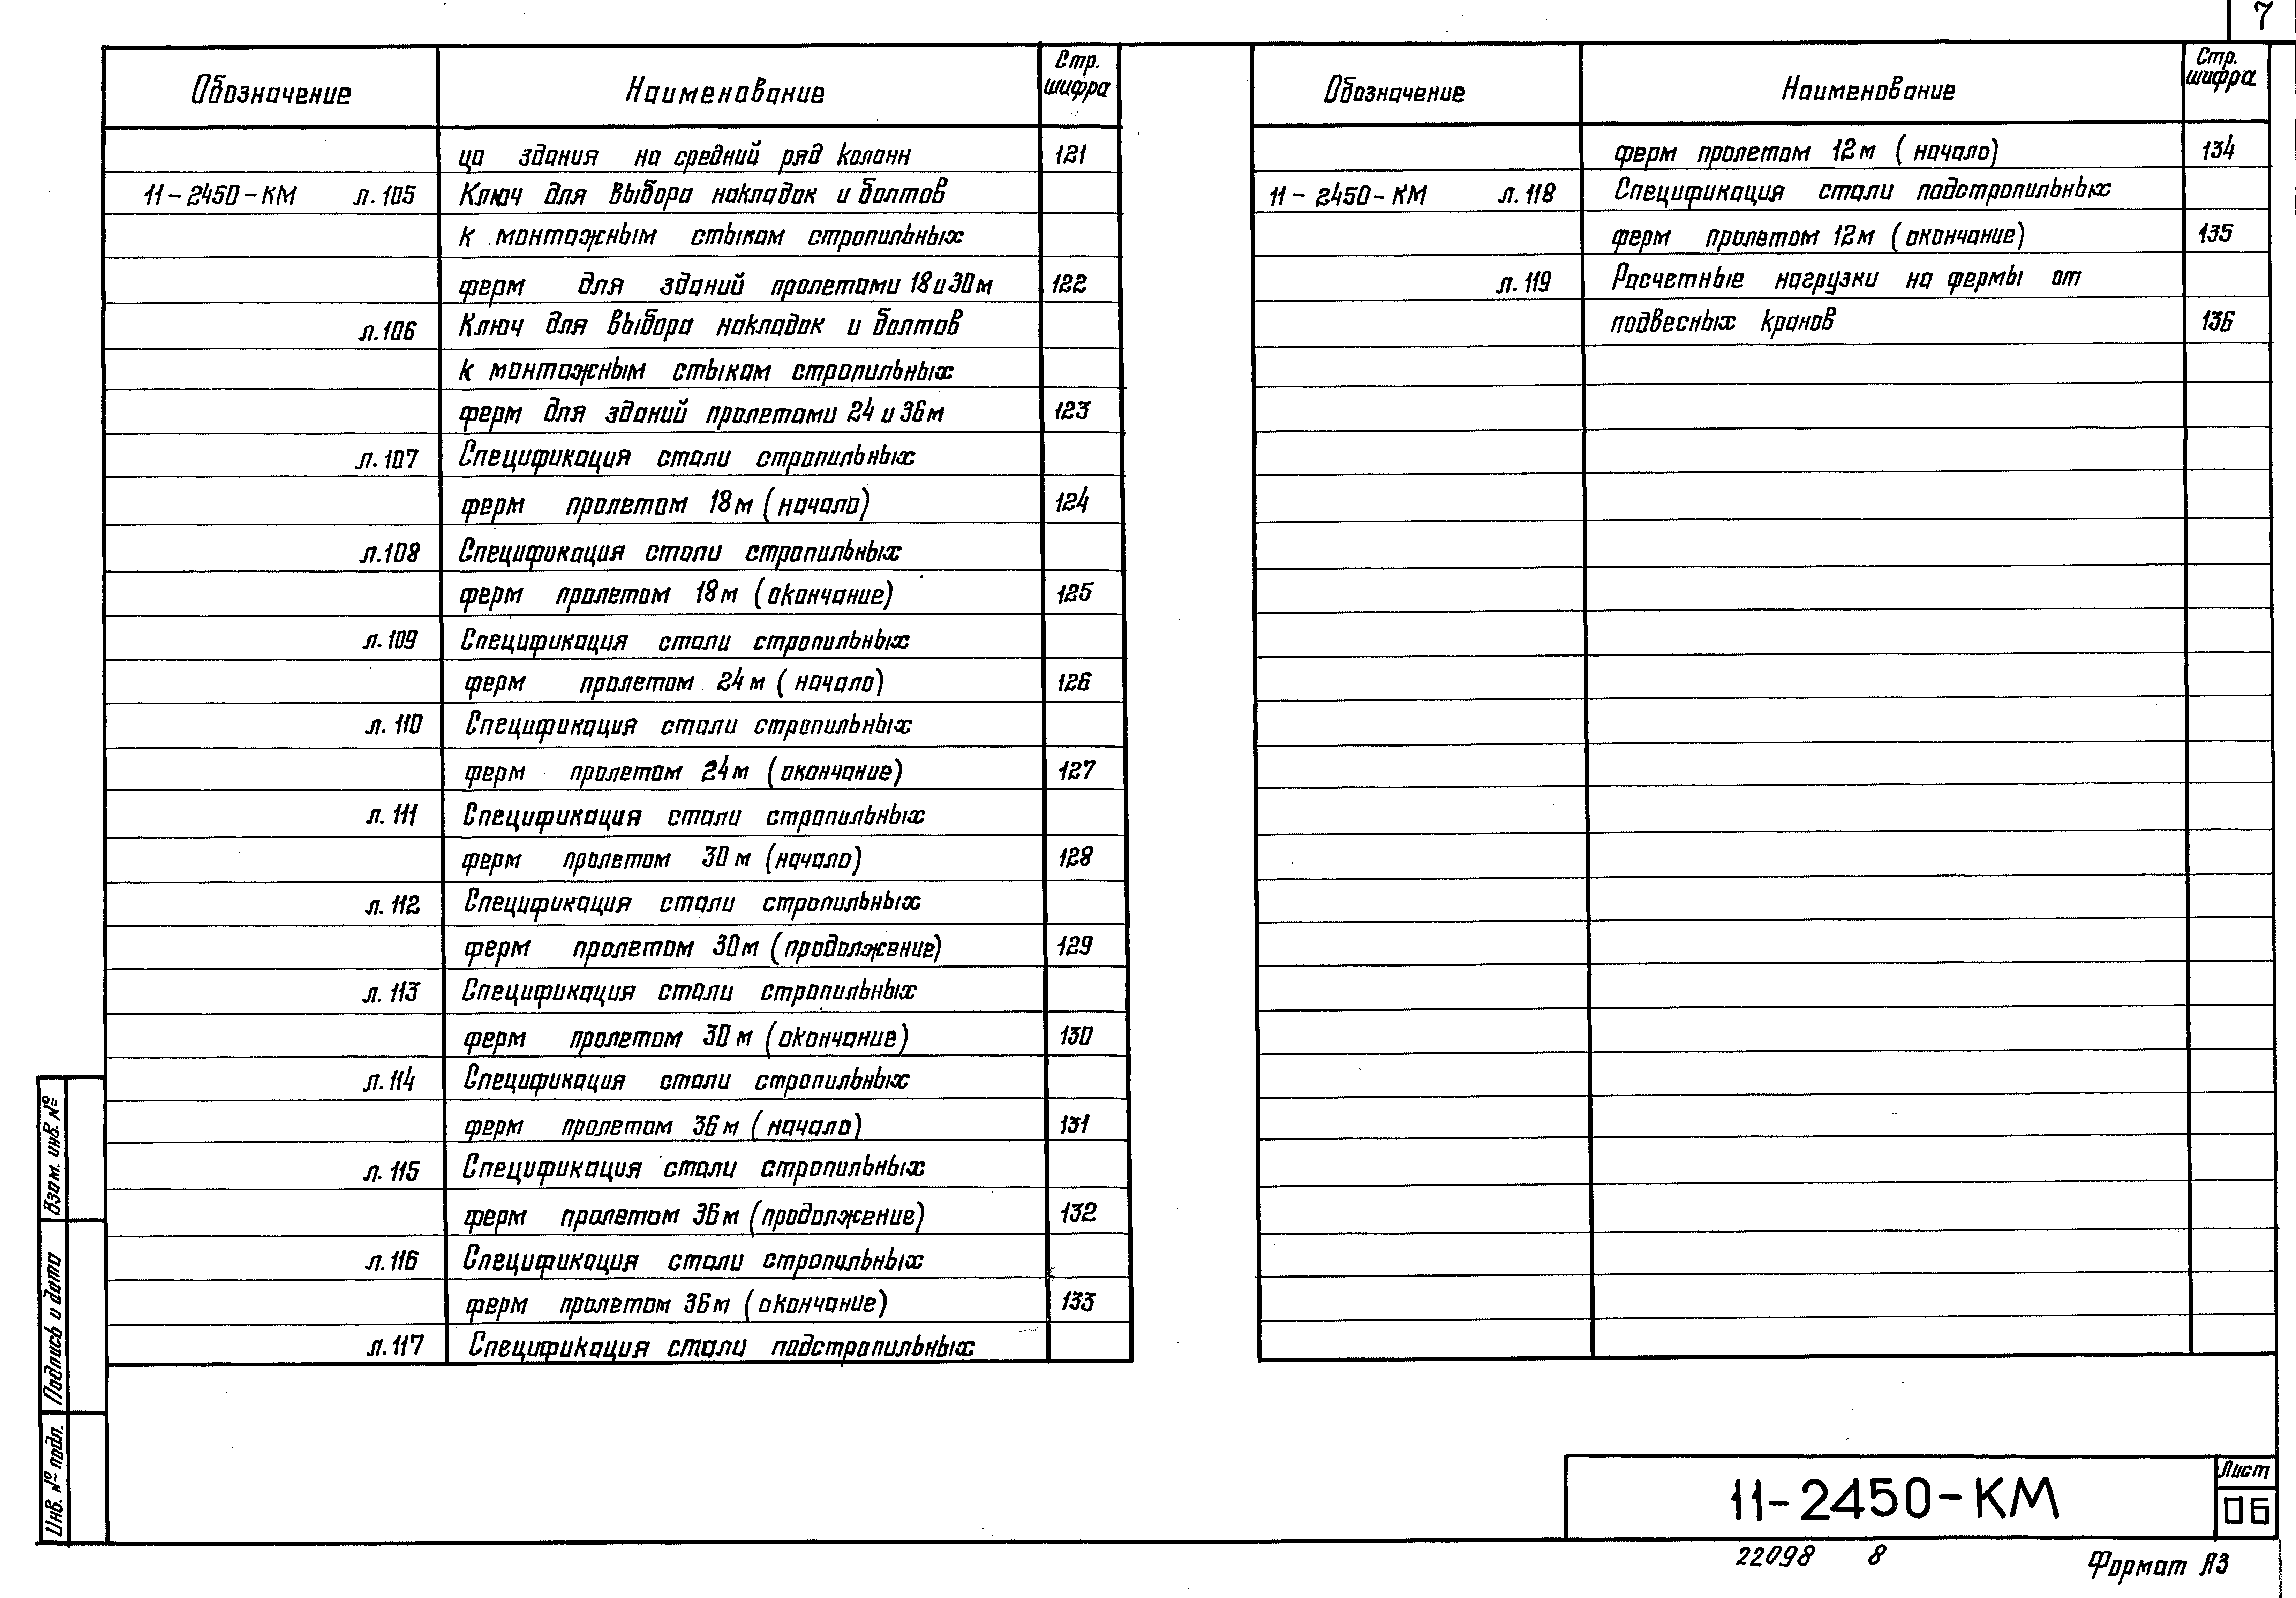 7
Обозначение Наименование Стр. шифра
ца здания на средний ряд колонн 121
11-2450-КМ л.105 Ключ для выбора накладок и болтов
к монтажным стыкам стропильных
ферм для зданий пролетами 18 и 30м 122
л.106 Ключ для выбора накладок и болтов
к монтажным стыкам стропильных
ферм для зданий пролетами 24 и 36м 123
л.107 Спецификация стали стропильных
ферм пролетом 18м (начало) 124
л.108 Спецификация стали стропильных
ферм пролетом 18м (окончание) 125
л.109 Спецификация стали стропильных
ферм пролетом 24м (начало) 126
л.110 Спецификация стали стропильных
ферм пролетом 24м (окончание) 127
л.111 Спецификация стали стропильных
ферм пролетом 30м (начало) 128
л.112 Спецификация стали стропильных
ферм пролетом 30м (продолжение) 129
л.113 Спецификация стали стропильных
ферм пролетом 30м (окончание) 130
л.114 Спецификация стали стропильных
ферм пролетом 36м (начало) 131
л.115 Спецификация стали стропильных
ферм пролетом 36м (продолжение) 132
л.116 Спецификация стали стропильных
ферм пролетом 36м (окончание) 133
л.117 Спецификация стали подстропильных
Обозначение Наименование Стр. шифра
ферм пролетом 12м (начало) 134
11-2450-КМ л.118 Спецификация стали подстропильных
ферм пролетом 12м (окончание) 135
л.119 Расчетные нагрузки на фермы от
подвесных кранов 136
Взам. инв. №
Подпись и дата
Инв. № подл.
11-2450-КМ
Лист
06
22098 8
Формат А3